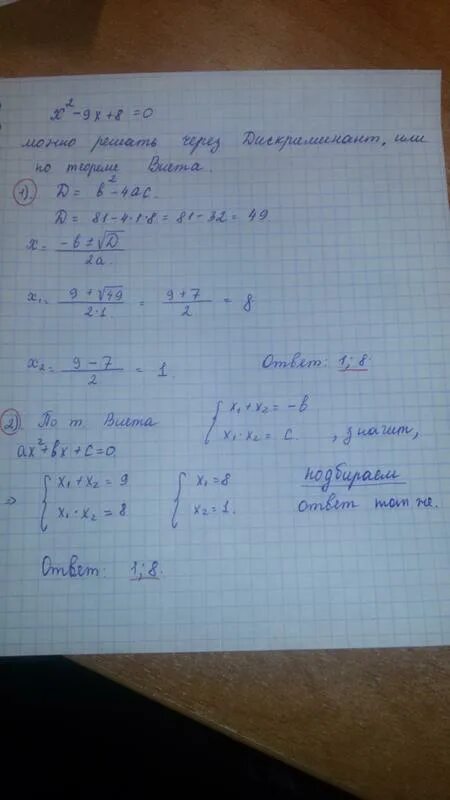 x² - 9x + 8 = 0
можно решать через Дискриминант, или
по теореме Виета.
1). D = b² - 4ac.
D = 81 - 4·1·8 = 81 - 32 = 49.
x = (-b ± √D) / 2a.
x₁ = (9 + √49) / (2·1) = (9 + 7) / 2 = 8
x₂ = (9 - 7) / 2 = 1. Ответ: 1; 8.
2). По т. Виета { x₁ + x₂ = -b
ax² + bx + c = 0. { x₁ · x₂ = c. , значит,
⇒ { x₁ + x₂ = 9 { x₁ = 8 подбираем
{ x₁ · x₂ = 8 { x₂ = 1. ответ тот же.
Ответ: 1; 8.